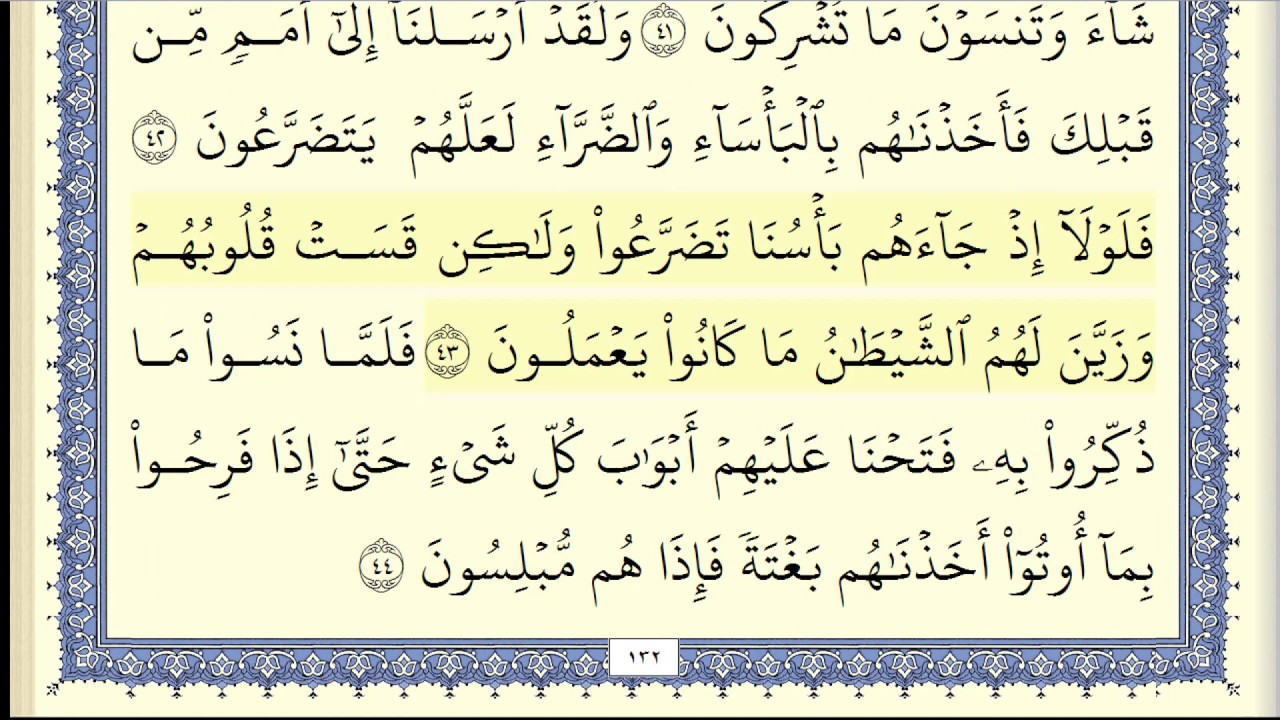 شَآءَ وَتَنسَوۡنَ مَا تُشۡرِكُونَ ٤١ وَلَقَدۡ أَرۡسَلۡنَآ إِلَىٰٓ أُمَمٖ مِّن
قَبۡلِكَ فَأَخَذۡنَٰهُم بِٱلۡبَأۡسَآءِ وَٱلضَّرَّآءِ لَعَلَّهُمۡ يَتَضَرَّعُونَ ٤٢
فَلَوۡلَآ إِذۡ جَآءَهُم بَأۡسُنَا تَضَرَّعُواْ وَلَٰكِن قَسَتۡ قُلُوبُهُمۡ
وَزَيَّنَ لَهُمُ ٱلشَّيۡطَٰنُ مَا كَانُواْ يَعۡمَلُونَ ٤٣ فَلَمَّا نَسُواْ مَا
ذُكِّرُواْ بِهِۦ فَتَحۡنَا عَلَيۡهِمۡ أَبۡوَٰبَ كُلِّ شَيۡءٍ حَتَّىٰٓ إِذَا فَرِحُواْ
بِمَآ أُوتُوٓاْ أَخَذۡنَٰهُم بَغۡتَةٗ فَإِذَا هُم مُّبۡلِسُونَ ٤٤
١٣٢